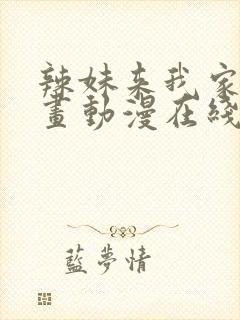 辣妹来我家
畫動漫在綫
藍夢情